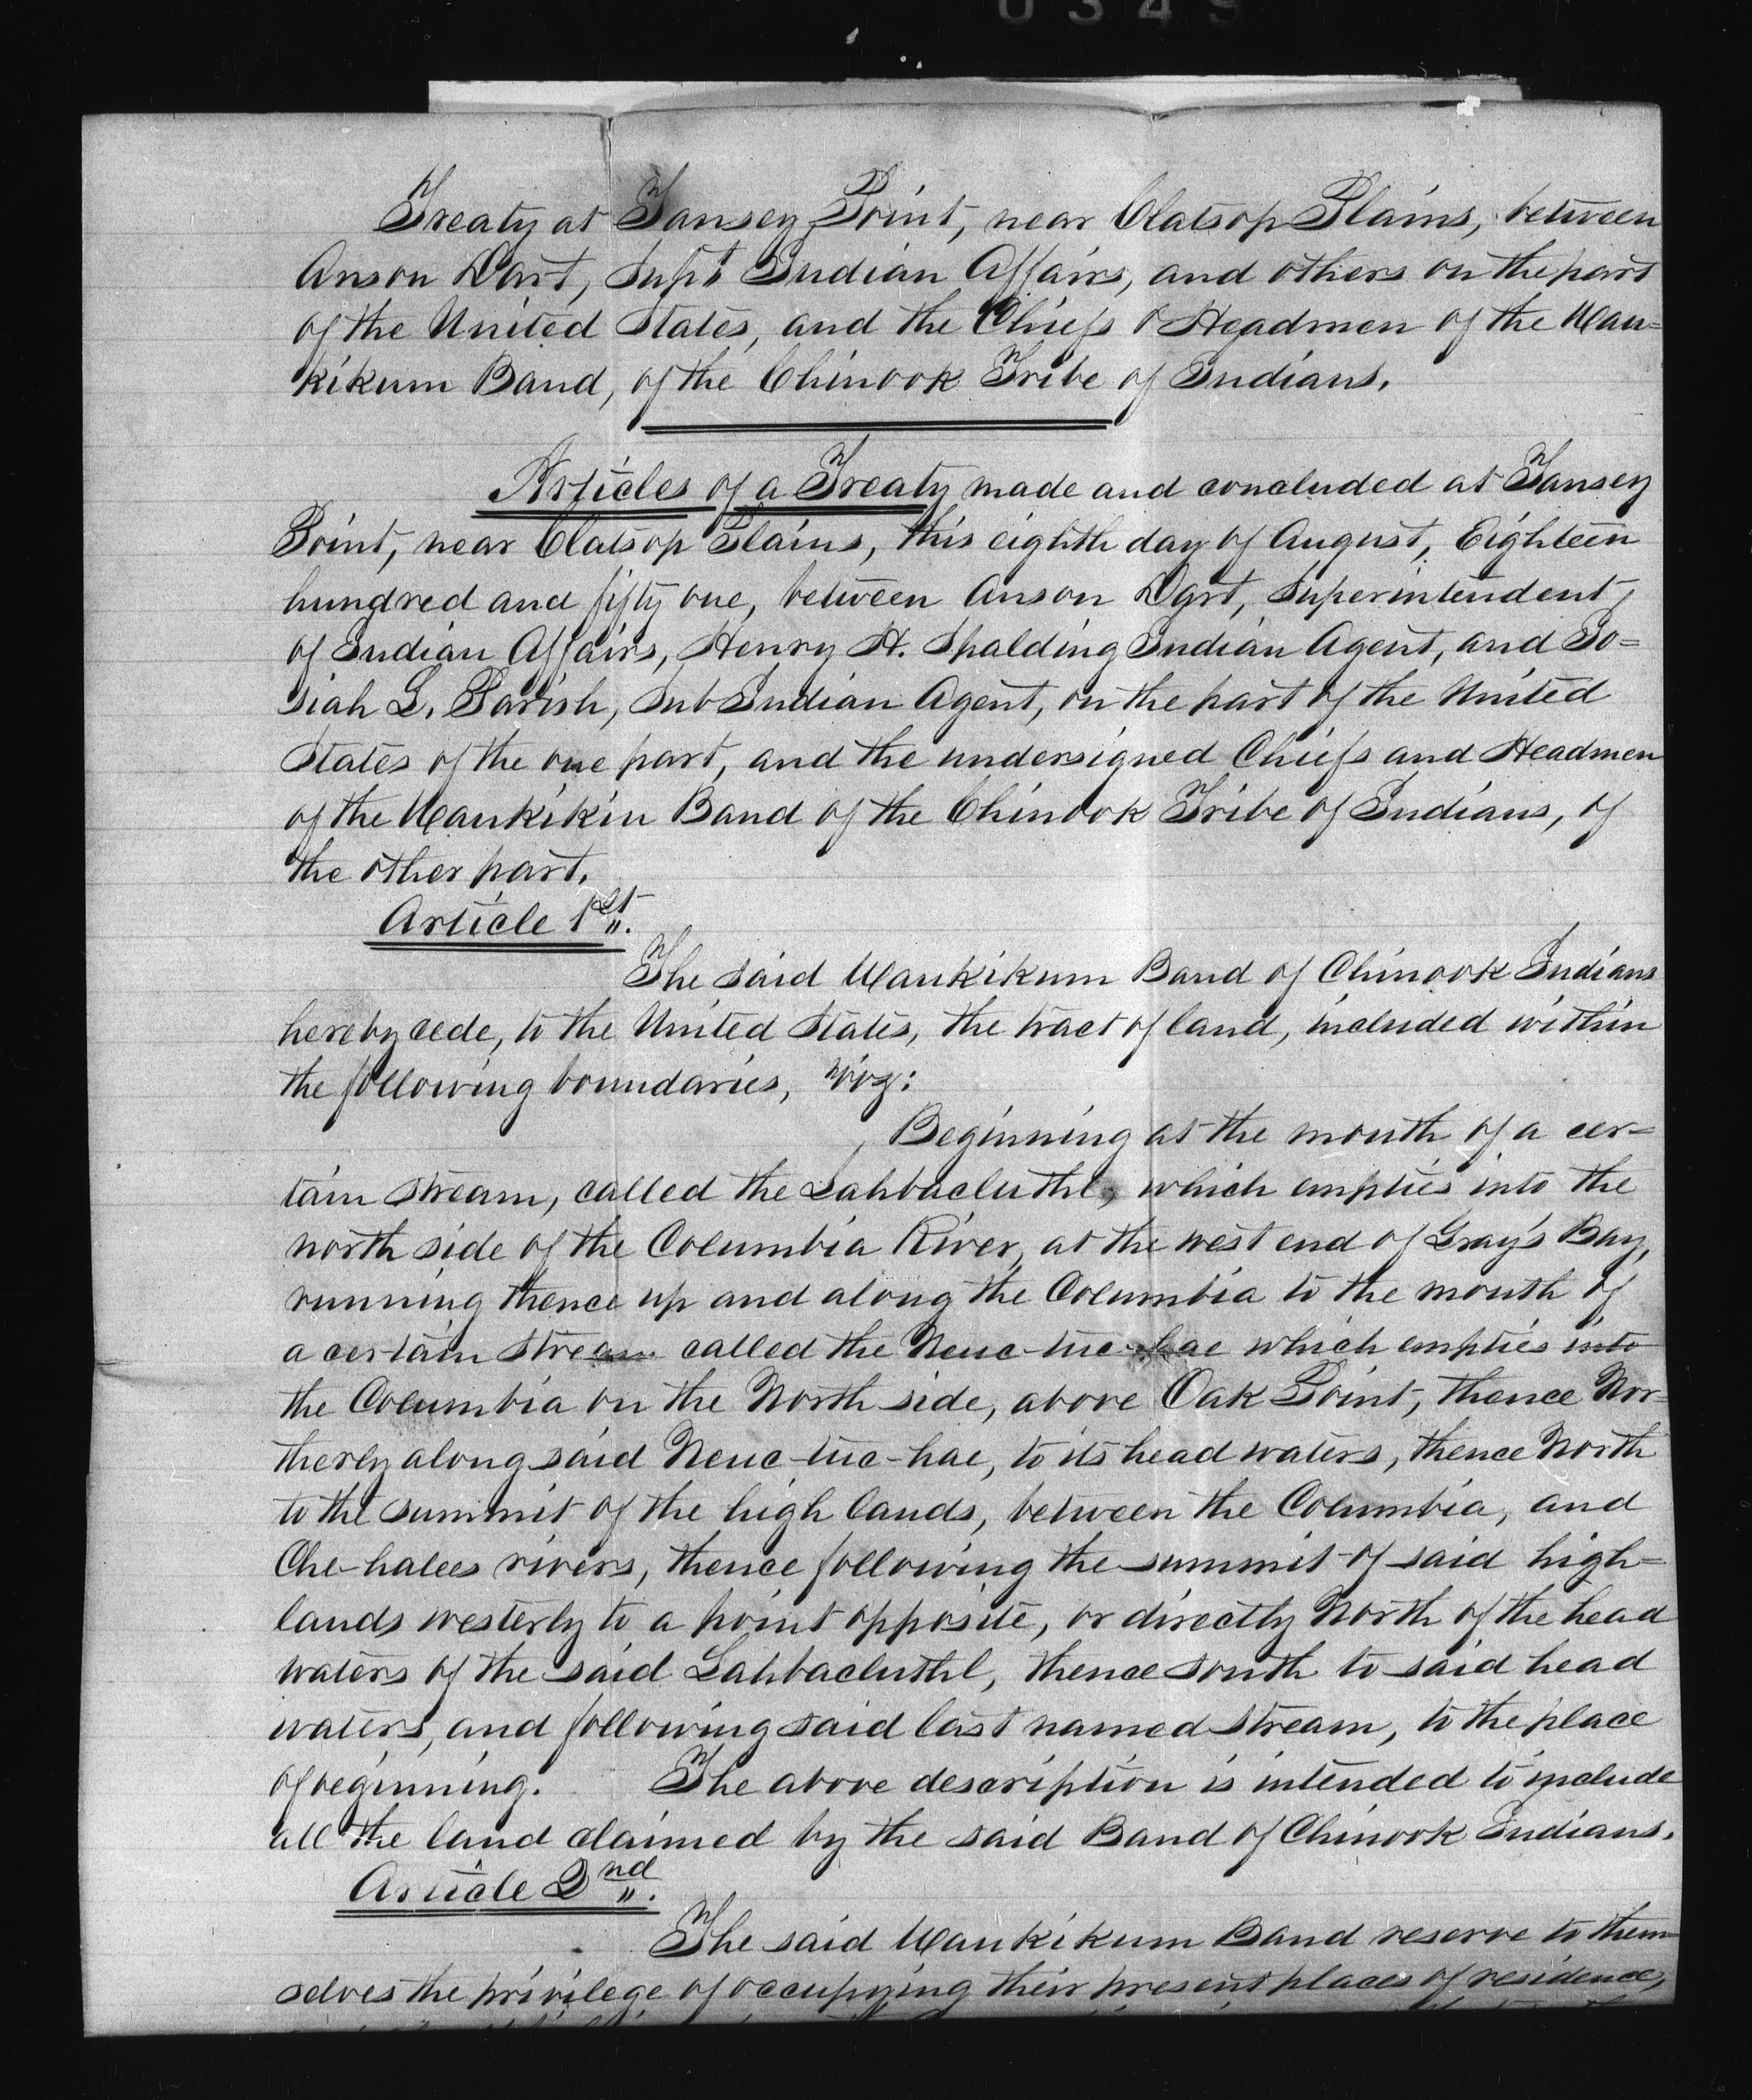 0349
Treaty at Tansey Point, near Clatsop Plains, between
Anson Dart, Supt Indian Affairs, and others on the part
of the United States, and the Chiefs & Headmen of the Wau=
kikum Band, of the Chinook Tribe of Indians.
Articles of a Treaty made and concluded at Tansey
Point, near Clatsop Plains, this eighth day of August, Eighteen
hundred and fifty one, between Anson Dart, Superintendent,
of Indian Affairs, Henry H. Spalding Indian Agent, and Jo=
siah L. Parish, Sub Indian Agent, on the part of the United
States of the one part, and the undersigned Chiefs and Headmen
of the Waukikin Band of the Chinook Tribe of Indians, of
the other part.
Article 1st.
The said Waukikum Band of Chinook Indians
hereby cede, to the United States, the tract of land, included within
the following boundaries, viz:
Beginning at the mouth of a cer=
tain stream, called the Lahbacluthl, which empties into the
north side of the Columbia River, at the west end of Gray's Bay,
running thence up and along the Columbia to the mouth of
a certain stream called the Neuc-tuc-hae which empties into
the Columbia on the North side, above Oak Point, thence Nor=
therly along said Neuc-tuc-hae, to its head waters, thence North
to the summit of the high lands, between the Columbia, and
Che-halees rivers, thence following the summit of said high=
lands westerly to a point opposite, or directly North of the head
waters of the said Lahbacluthl, thence south to said head
waters, and following said last named stream, to the place
of beginning. The above description is intended to include
all the land claimed by the said Band of Chinook Indians.
Article 2nd.
The said Waukikum Band reserve to them=
selves the privilege of occupying their present places of residence,